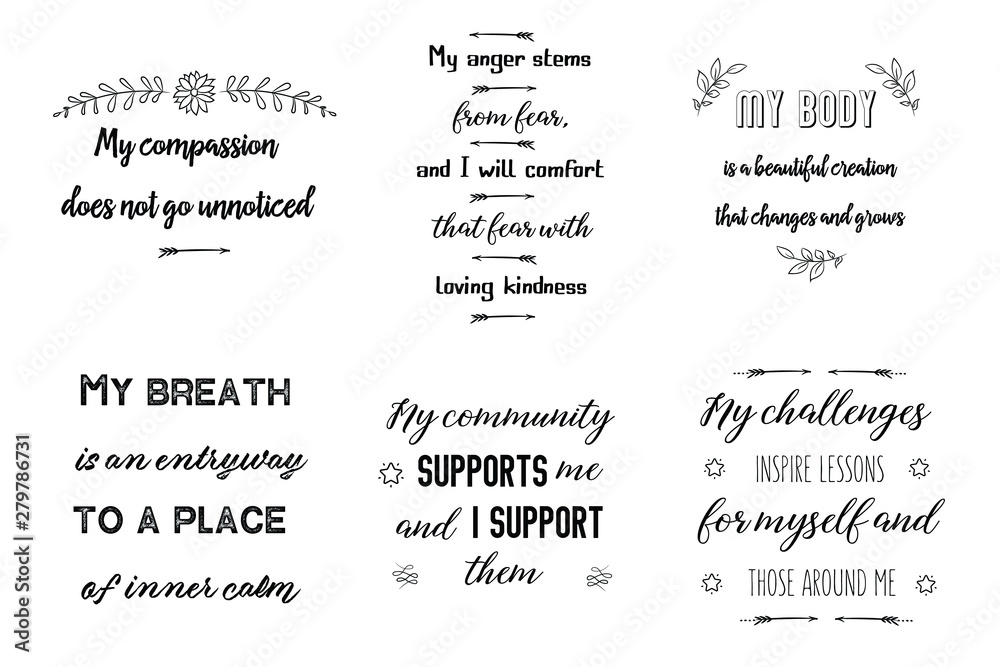 My compassion
does not go unnoticed
My anger stems
from fear,
and I will comfort
that fear with
loving kindness
MY BODY
is a beautiful creation
that changes and grows
MY BREATH
is an entryway
TO A PLACE
of inner calm
My community
SUPPORTS me
and I SUPPORT
them
My challenges
INSPIRE LESSONS
for myself and
THOSE AROUND ME
Adobe Stock | #279786731